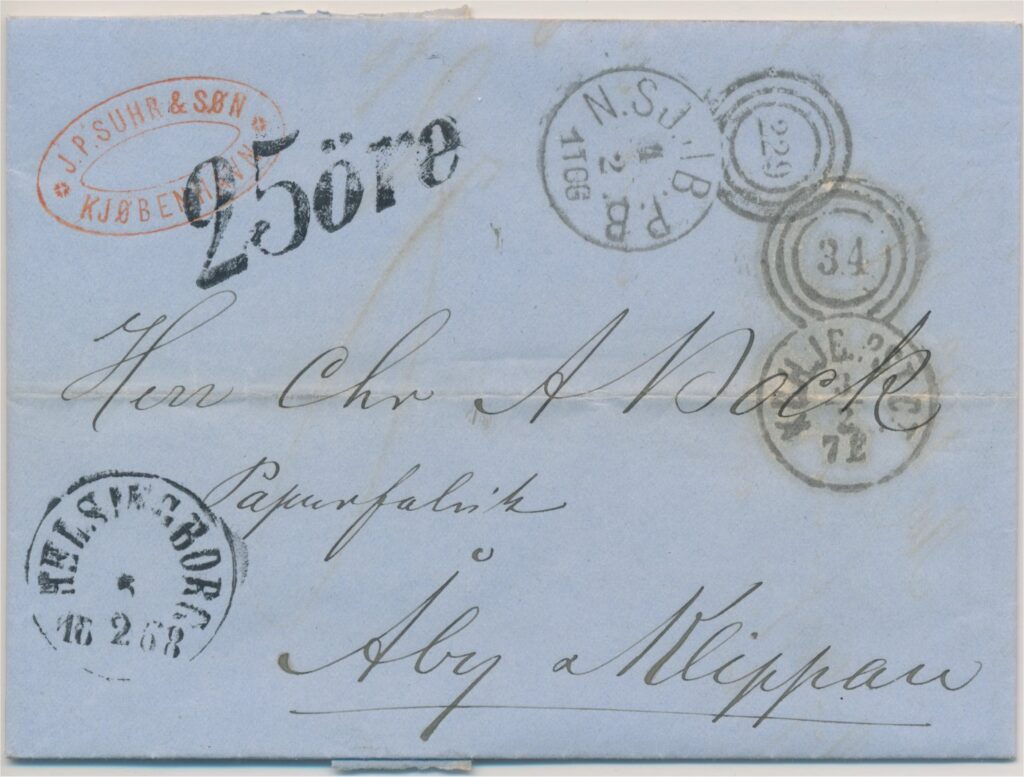 J.P. SUHR & SØN
KJØBENHAVN
25öre
N.SJ.JB.P.B
2
1TOG
229
34
72
Herr Chr A Bock
Papirfabrik
Åby a Klippan
HELSINGBORG
16 2 68